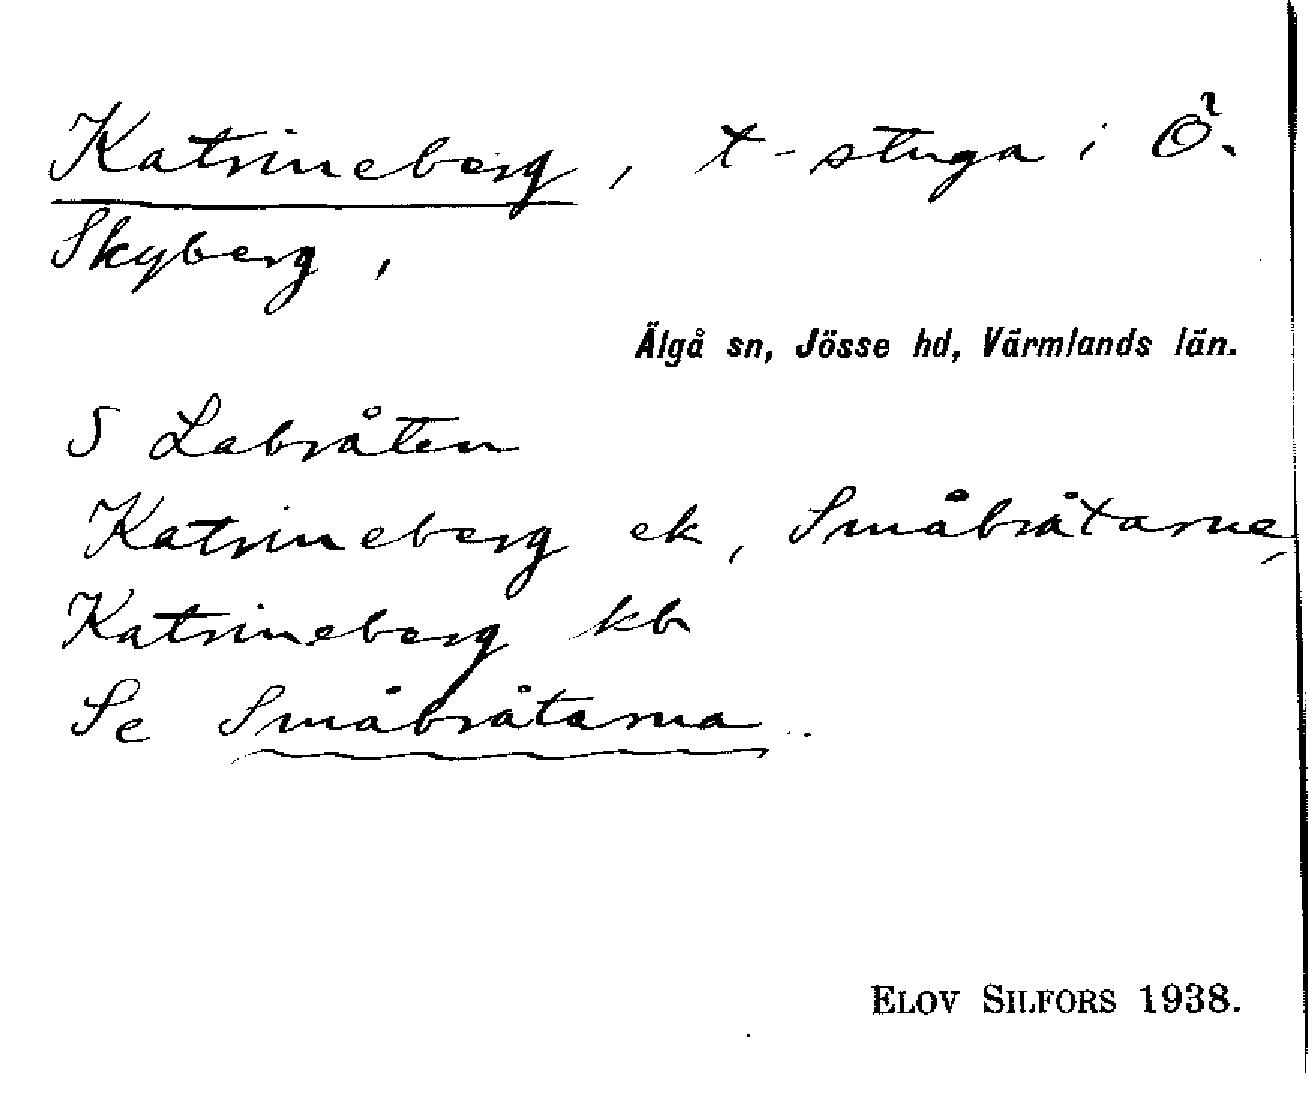 Katrineberg, t-stuga i Ö.
Skyberg,
Älgå sn, Jösse hd, Värmlands län.
S Labråten
Katrineberg ek, Småbråtarne,
Katrineberg kb
Se Småbråtarna.
ELOV SILFORS 1938.